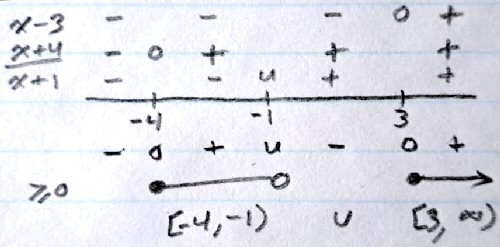 x-3 - - - 0 +
x+4 - 0 + + +
x+1 - - u + +
-4 -1 3
- 0 + u - 0 +
≥0
[-4,-1) ∪ [3,∞)